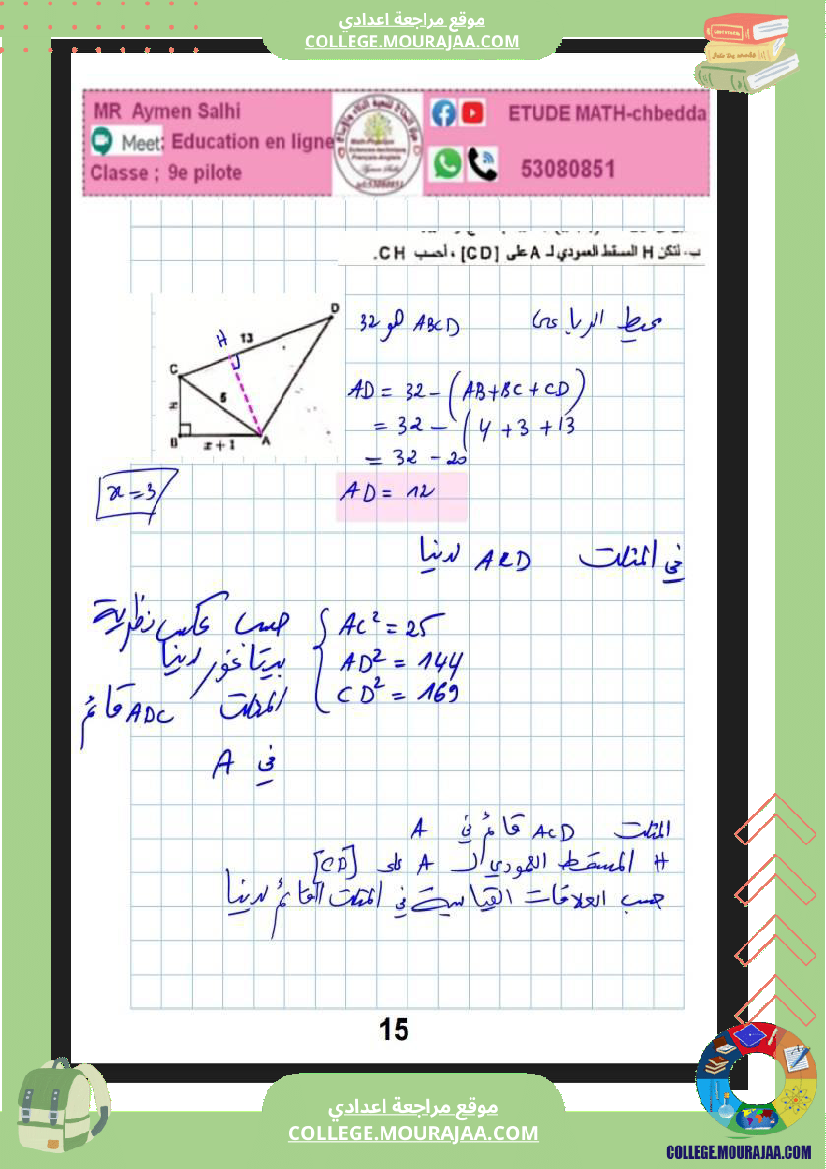 موقع مراجعة اعدادي
COLLEGE.MOURAJAA.COM
MR Aymen Salhi
Meet: Education en ligne
Classe ; 9e pilote
ETUDE MATH-chbedda
53080851
ب- لتكن H المسقط العمودي لـ A على [CD] ، أحسب CH.
D
H 13
C
5
x
B x+1 A
محيط الرباعي ABCD هو 32
AD = 32 - (AB+BC+CD)
= 32 - (4+3+13
= 32 - 20
AD = 12
x = 3
في المثلث ACD لدينا
AC² = 25
AD² = 144
CD² = 169
حسب عكس نظرية
بيتاغور لدينا
المثلث ADC قائم
في A
المثلث ACD قائم في A
H المسقط العمودي لـ A على [CD]
حسب العلاقات القياسية في المثلث القائم لدينا
15
موقع مراجعة اعدادي
COLLEGE.MOURAJAA.COM
COLLEGE.MOURAJAA.COM